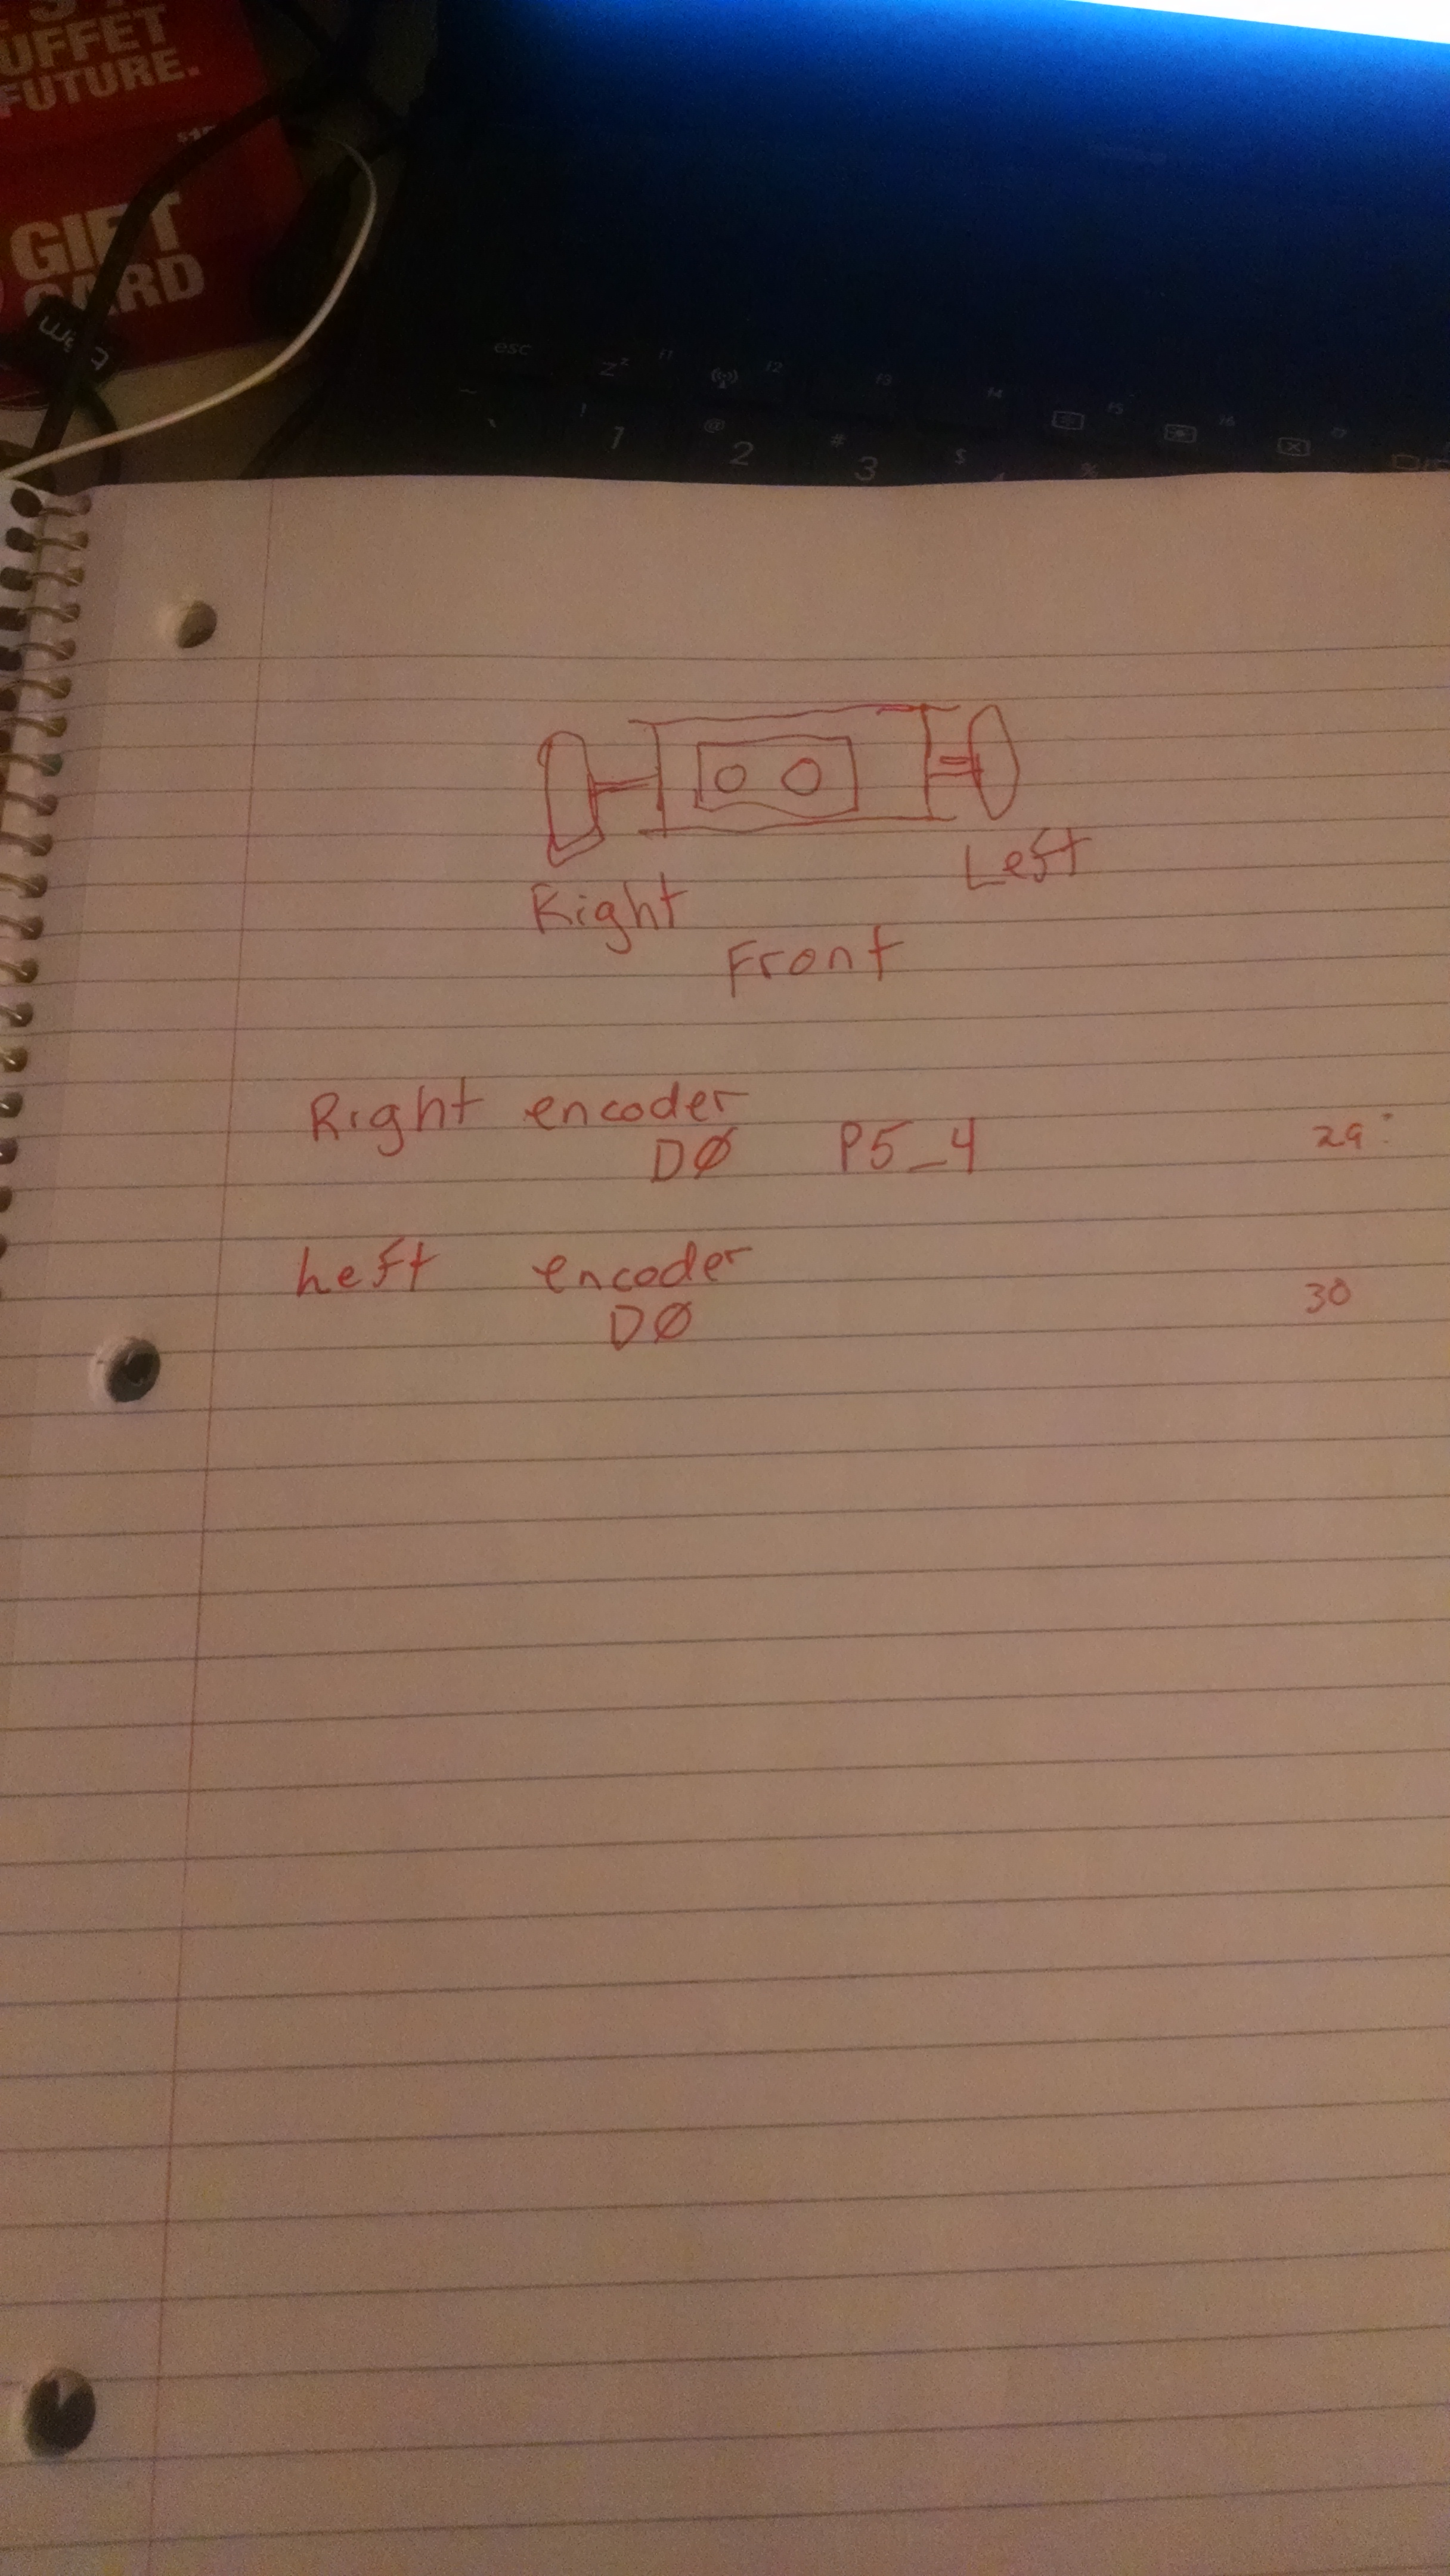 UFFET
FUTURE.
GIFT
CARD
esc
Z F1 F2 F3 F4 F5 F6
~ ! @ # $ %
` 1 2 3
Left
Right
Front
Right encoder
DØ P5_4 29
Left encoder
DØ 30